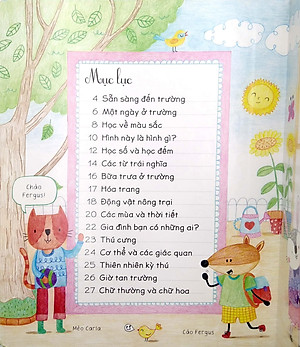 Mục lục
4 Sẵn sàng đến trường
6 Một ngày ở trường
8 Học về màu sắc
10 Hình này là hình gì?
12 Học số và học đếm
14 Các từ trái nghĩa
16 Bữa trưa ở trường
17 Hóa trang
18 Động vật nông trại
20 Các mùa và thời tiết
22 Gia đình bạn có những ai?
23 Thú cưng
24 Cơ thể và các giác quan
25 Thiên nhiên kỳ thú
26 Giờ tan trường
27 Chữ thường và chữ hoa
Chào
Fergus!
Mèo Carla
Cáo Fergus